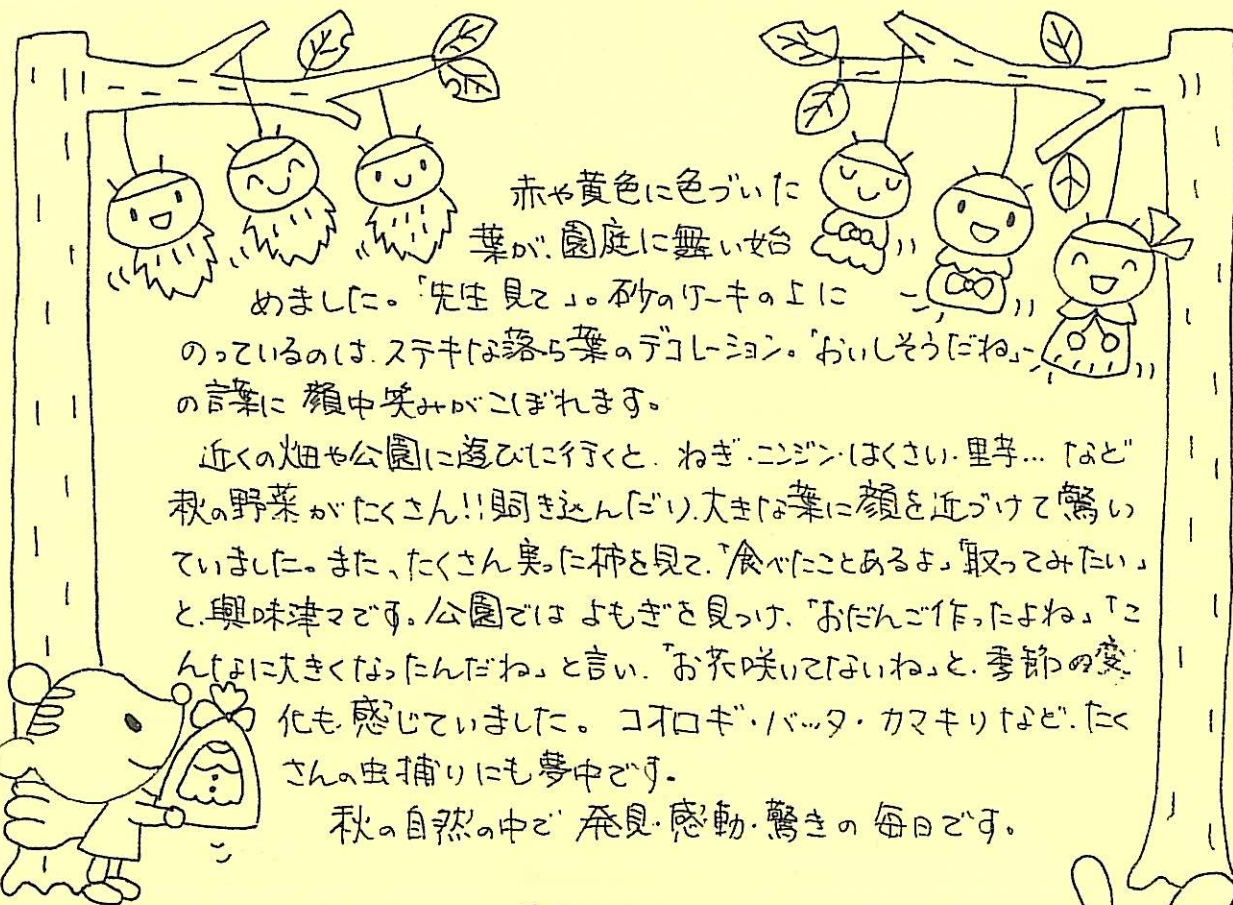 赤や黄色に色づいた
葉が、園庭に舞い始
めました。「先生見て」。砂のケーキの上に
のっているのは、ステキな落ち葉のデコレーション。「おいしそうだね」
の言葉に 顔中笑みがこぼれます。
近くの畑や公園に遊びに行くと、ねぎ・ニンジン・はくさい・里芋…など
秋の野菜がたくさん!!覗き込んだり、大きな葉に顔を近づけて驚い
ていました。また、たくさん実った柿を見て、「食べたことあるよ」「取ってみたい」
と、興味津々です。公園では よもぎを見つけ、「おだんご作ったよね」「こ
んなに大きくなったんだね」と言い、「お花咲いてないね」と、季節の変
化も感じていました。コオロギ・バッタ・カマキリなど、たく
さんの虫捕りにも夢中です。
秋の自然の中で 発見・感動・驚きの 毎日です。